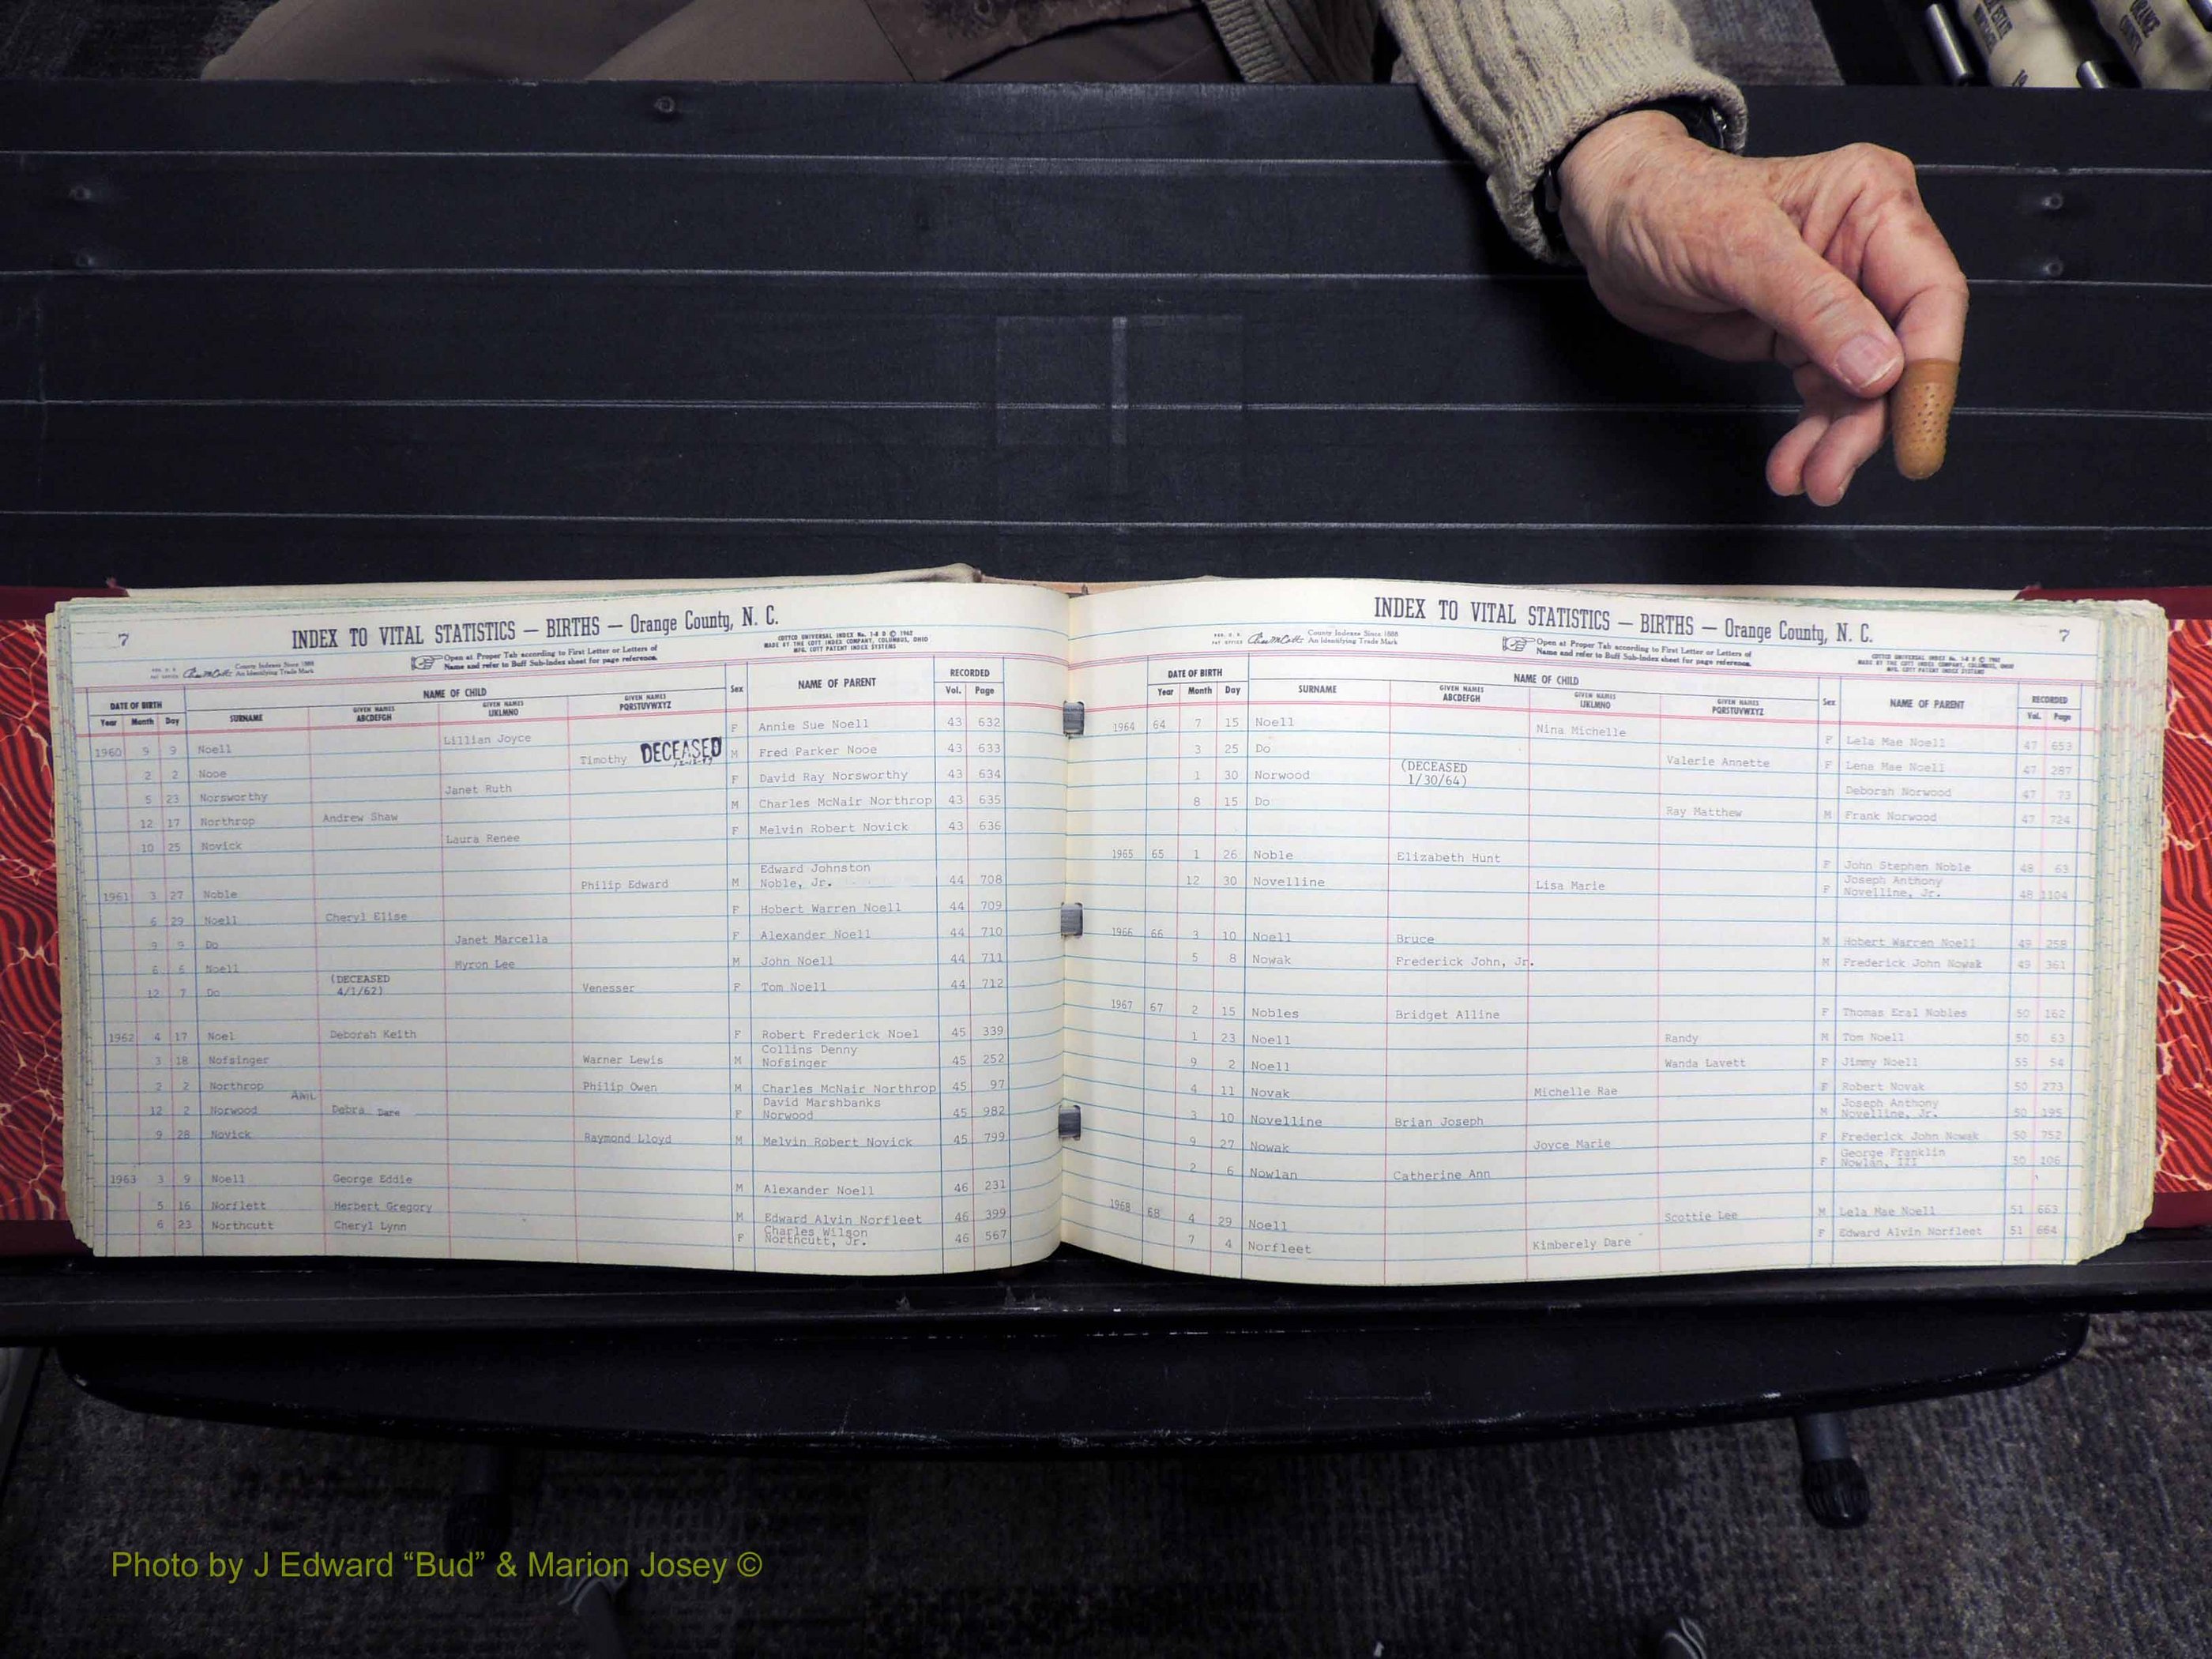 ORANGE
COUNTY
7
INDEX TO VITAL STATISTICS — BIRTHS — Orange County, N. C.
COTTCO UNIVERSAL INDEX No. 1-8 D © 1962
MADE BY THE COTT INDEX COMPANY, COLUMBUS, OHIO
MFG. COTT PATENT INDEX SYSTEMS
County Indexes Since 1888
An Identifying Trade Mark
Open at Proper Tab according to First Letter or Letters of
Name and refer to Buff Sub-Index sheet for page reference.
DATE OF BIRTH NAME OF CHILD Sex NAME OF PARENT RECORDED
Year Month Day SURNAME GIVEN NAMES ABCDEFGH GIVEN NAMES IJKLMNO GIVEN NAMES PQRSTUVWXYZ Vol. Page
1960 5 9 Noell Lillian Joyce F Annie Sue Noell 43 632
2 2 Nooe Timothy DECEASED M Fred Parker Nooe 43 633
5 23 Norsworthy Janet Ruth F David Ray Norsworthy 43 634
12 17 Northrop Andrew Shaw M Charles McNair Northrop 43 635
10 25 Novick Laura Renee F Melvin Robert Novick 43 636
1961 3 27 Noble Philip Edward M Edward Johnston Noble, Jr. 44 708
6 29 Noell Cheryl Elise F Hobert Warren Noell 44 709
9 9 Do Janet Marcella F Alexander Noell 44 710
6 6 Noell Myron Lee M John Noell 44 711
12 7 Do (DECEASED 4/1/62) Venesser F Tom Noell 44 712
1962 4 17 Noel Deborah Keith F Robert Frederick Noel 45 339
3 18 Nofsinger Warner Lewis M Collins Denny Nofsinger 45 252
2 2 Northrop Philip Owen M Charles McNair Northrop 45 97
12 2 Norwood Debra Dare F David Marshbanks Norwood 45 982
9 28 Novick Raymond Lloyd M Melvin Robert Novick 45 799
1963 3 9 Noell George Eddie M Alexander Noell 46 231
5 16 Norflett Herbert Gregory M Edward Alvin Norfleet 46 399
6 23 Northcutt Cheryl Lynn F Charles Wilson Northcutt, Jr. 46 567
INDEX TO VITAL STATISTICS — BIRTHS — Orange County, N. C.
7
County Indexes Since 1888
An Identifying Trade Mark
Open at Proper Tab according to First Letter or Letters of
Name and refer to Buff Sub-Index sheet for page reference.
DATE OF BIRTH NAME OF CHILD Sex NAME OF PARENT RECORDED
Year Month Day SURNAME GIVEN NAMES ABCDEFGH GIVEN NAMES IJKLMNO GIVEN NAMES PQRSTUVWXYZ Vol. Page
1964 64 7 15 Noell Nina Michelle F Lela Mae Noell 47 653
3 25 Do Valerie Annette F Lena Mae Noell 47 287
1 30 Norwood (DECEASED 1/30/64) Deborah Norwood 47 73
8 15 Do Ray Matthew M Frank Norwood 47 724
1965 65 1 26 Noble Elizabeth Hunt F John Stephen Noble 48 63
12 30 Novelline Lisa Marie F Joseph Anthony Novelline, Jr. 48 1104
1966 66 3 10 Noell Bruce M Hobert Warren Noell 49 258
5 8 Nowak Frederick John, Jr. M Frederick John Nowak 49 361
1967 67 2 15 Nobles Bridget Alline F Thomas Eral Nobles 50 162
1 23 Noell Randy M Tom Noell 50 63
9 2 Noell Wanda Lavett F Jimmy Noell 55 54
4 11 Novak Michelle Rae F Robert Novak 50 273
3 10 Novelline Brian Joseph M Joseph Anthony Novelline, Jr. 50 195
9 27 Nowak Joyce Marie F Frederick John Nowak 50 752
2 6 Nowlan Catherine Ann F George Franklin Nowlan, III 50 106
1968 68 4 29 Noell Scottie Lee M Lela Mae Noell 51 663
7 4 Norfleet Kimberely Dare F Edward Alvin Norfleet 51 664
Photo by J Edward “Bud” & Marion Josey ©